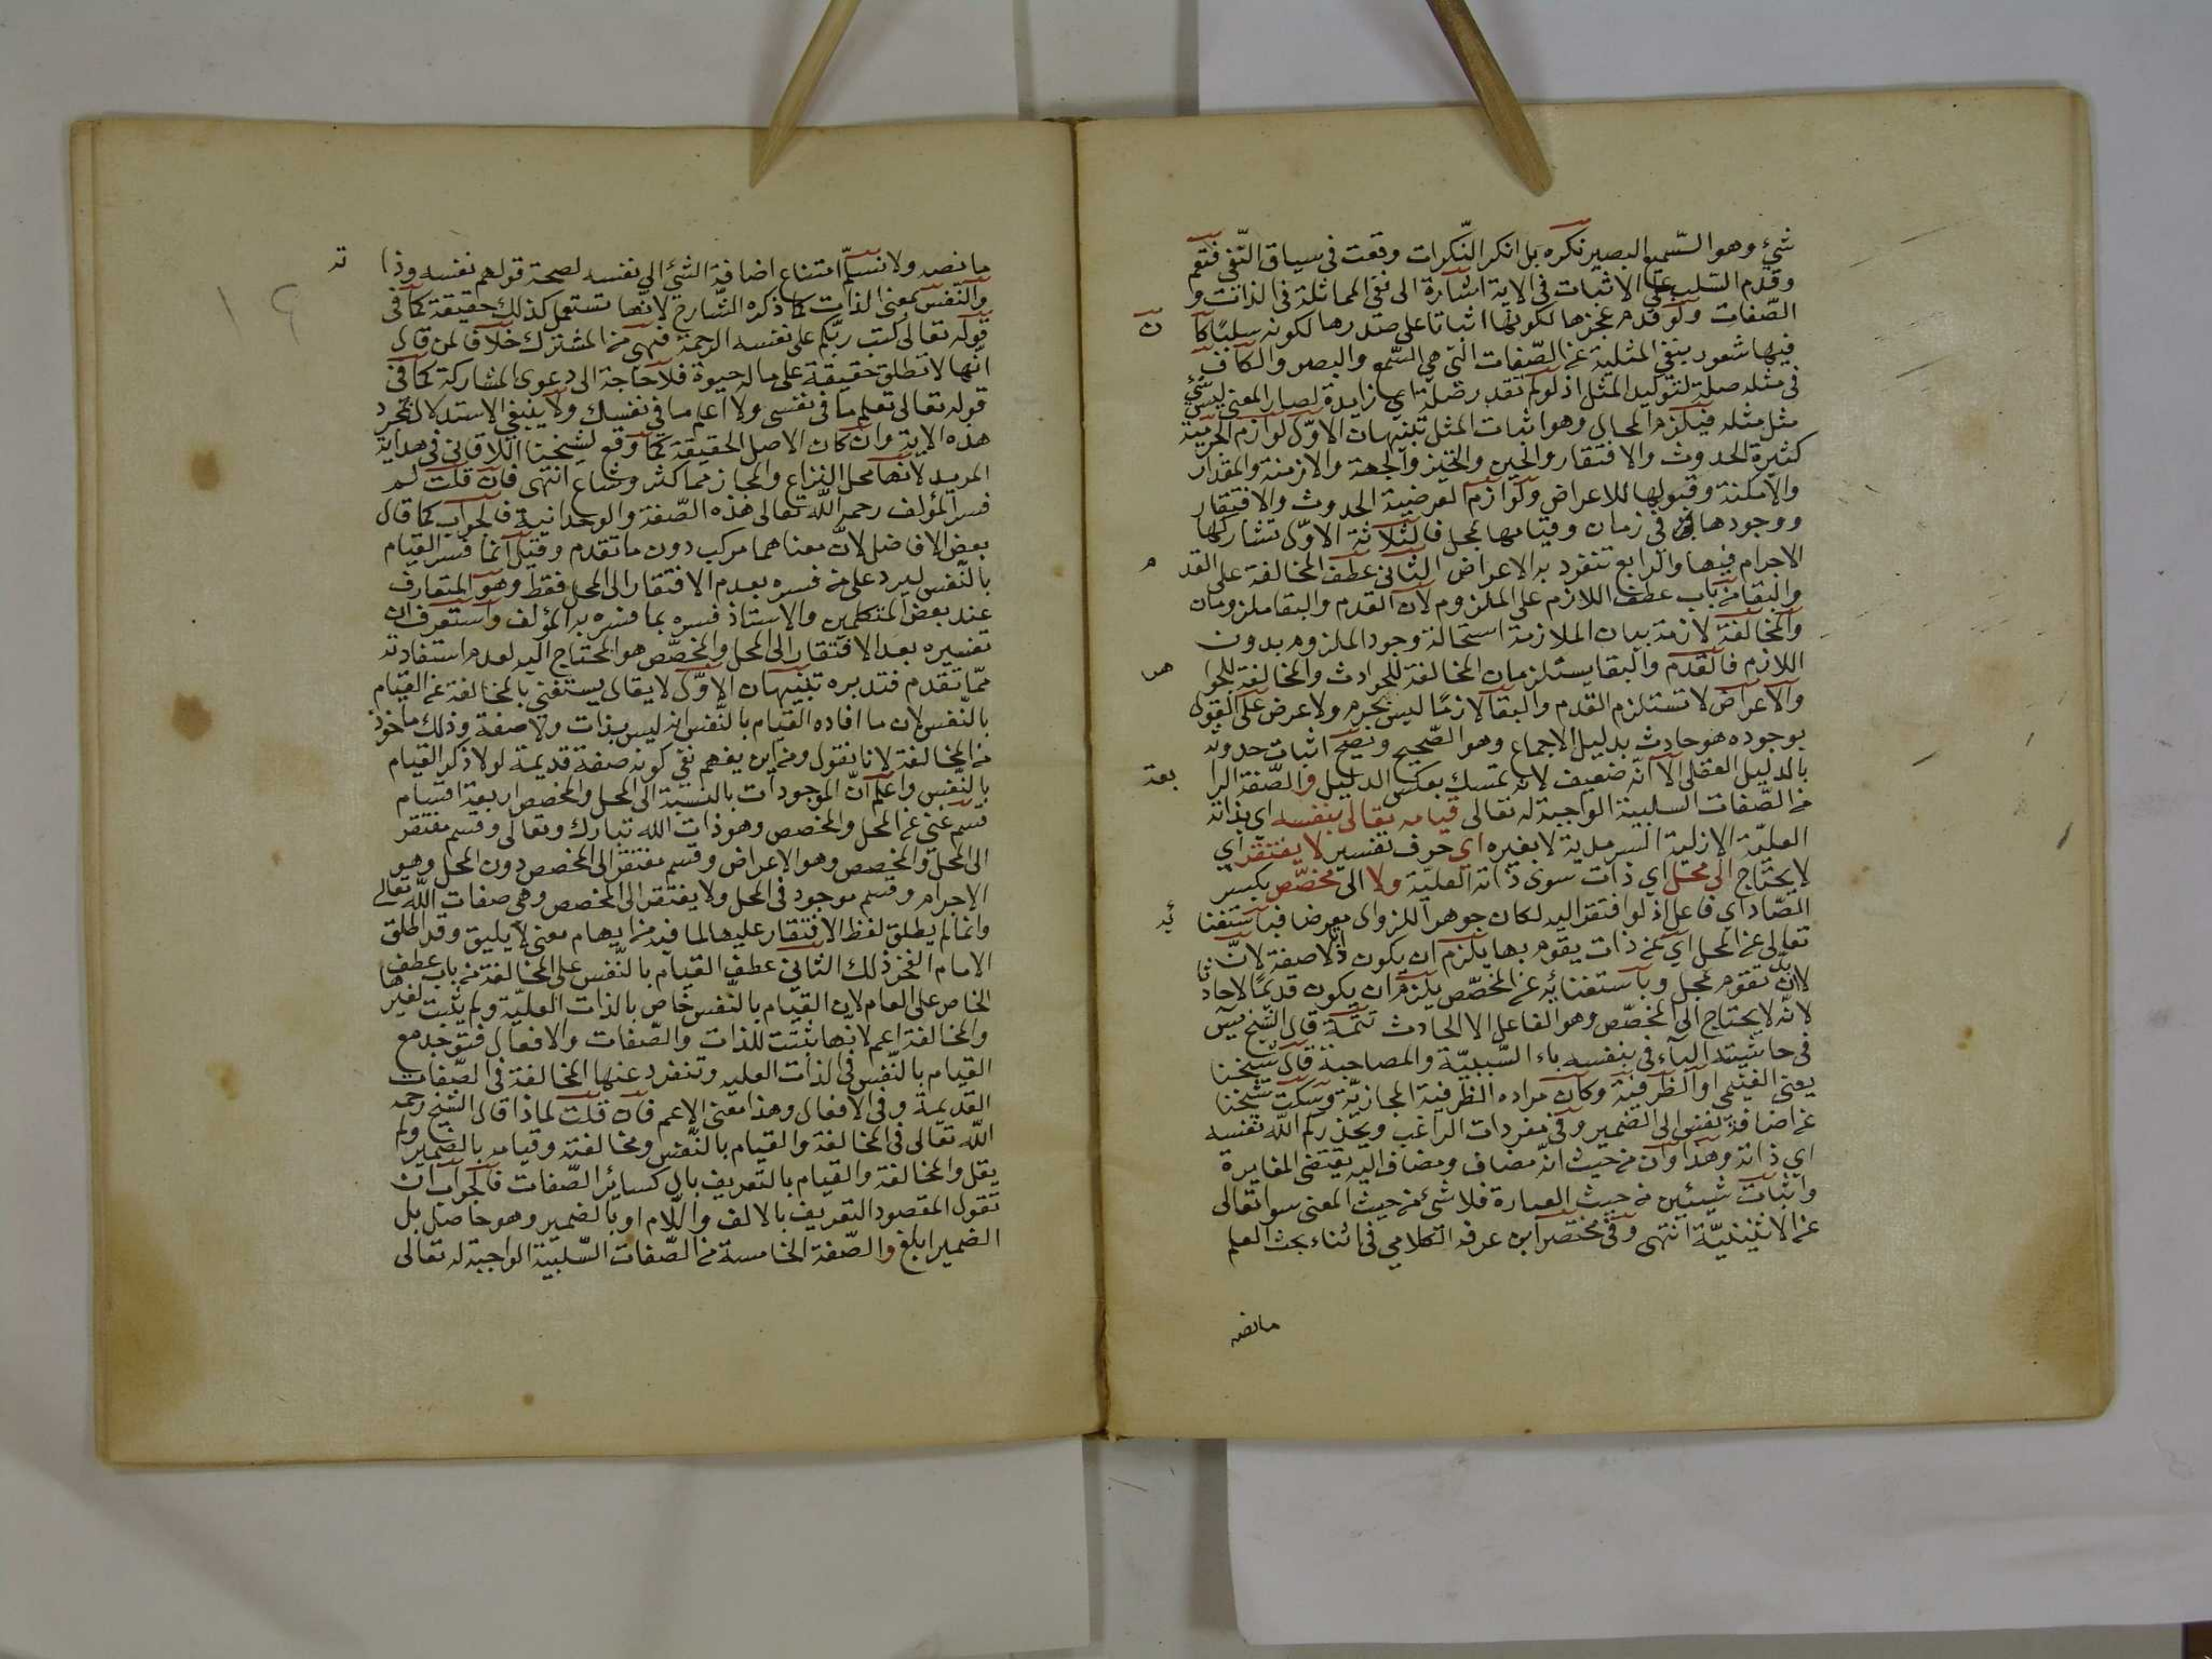 شيٌ وهو السّميع البصير نكره بل انكر النّكرات وقعت في سياق النّفي فتعم
وقدم السّلب على الاثبات في الاية اشارة الى نفي المماثلة في الذات و
الصّفات ولو قدم عجزها لكونها اثباتا على صدرها لكونه سلبًا كا ن
فيها شعور بنفي المثلية عن الصّفات التى هي السّمع والبصر والكاف
في مثله صلة لتوكيد المثل اذ لو لم تقدر صلة اي زايدة لصار المعنى ليس شي
مثل مثله فيلزم المحال وهو اثبات المثل تنبيهان الاوّل لوازم الجرمية
كثيرة الحدوث والافتقار والحين والتحيز والجهة والازمنة والمقدار
والامكنة وقبولها للاعراض ولوازم العرضية الحدوث والافتقار
ووجودها في زمان وقيامها بمحل فالثلاثة الاوّل تشاركها
الاجرام فيها والرابع تنفرد به الاعراض الثاني عطف المخالفة على القد م
والبقا من باب عطف اللازم على الملزوم لان القدم والبقا ملزومان
والمخالفة لازمة بيان الملازمة استحالة وجود الملزوم بدون
اللازم فالقدم والبقا يستلزمان المخالفة للحوادث والمخالفة للجوا هر
والاعراض لا تستلزم القدم والبقا لازمًا ليس بجرم ولا عرض على القول
بوجوده هو حادث بدليل الاجماع وهو الصّحيح ويصح اثبات حدوثه
بالدليل العقلى الا انّه ضعيف لانه تمسك بعكس الدليل والصّفة الرا بعة
من الصّفات السلبية الواجبة له تعالى قيامه تعالى بنفسه اي بذاته
العليّة الازلية السرمدية لا بغيره اي حرف تفسير لا يفتقر اي
لا يحتاج الى محل اي ذات سوى ذاته العليّة ولا الى مخصّص بكسر
الصّاد اي فاعل اذ لو افتقر اليه لكان جوهرا فباستغنا ئه
تعالى عن المحل اي عن ذات يقوم بها يلزم ان يكون ذاتا لا صفة لانّ
لانه تقوم بمحل وباستغنائه عن المخصّص يلزم ان يكون قديمًا لا حاد ثا
لانّه لا يحتاج الى المخصّص وهو الفاعل الا الحادث تتمّة قال الشيخ يس
في حاشيته البآء في بنفسه باء السّببيّة والمصاحبة قال شيخنا
يعني الغنيمي او الظرفية وكان مراده الظرفية المجازيّة وسكت شيخنا
عن اضافة نفس الى الضمير وفى مفردات الراغب ويحذركم اللّه نفسه
اي ذاته وهذا وان من حيث انّه مضاف ومضاف اليه يقتضى المغايرة
واثبات شيئين من حيث العبارة فلا شئ من حيث المعنى سوا تعالى
عن الاثنينيّة انتهى وفى مختصر ابن عرفه الكلامي فى اثناء بحث العلم
مانصه
مانصه ولا نسلّم امتناع اضافة الشئ الى نفسه لصحة قولهم نفسه وذا ته
والنّفس بمعنى الذات كما ذكره الشّارح لانّها تستعمل كذلك حقيقة كما فى
قوله تعالى كتب ربّكم على نفسه الرحمة فهي من المشترك خلافا لمن قال
انّها لا تطلق حقيقة على ماله حيوة فلا حاجة الى دعوى المشاركة كما فى
قوله تعالى تعلم ما فى نفسى ولا اعلم ما في نفسك ولا ينبغي الاستدلال بمجرد
هذه الاية وان كان الاصل الحقيقة كما وقع لشيخنا اللاقانى فى هداية
المريد لانها محل النزاع والمجاز مما كثر وشاع انتهى فان قلت لم
فسر المؤلف رحمه اللّه تعالى هذه الصّفة والوحدانية فالجواب كما قال
بعض الافاضل لانّ معناهما مركب دون ما تقدم وقيل انما فسر القيام
بالنّفس ليرد على من فسره بعدم الافتقار الى المحل فقط وهو المتعارف
عند بعض المتكلمين والاستاذ فسره بما فسره به المؤلف وستعرف ان
تفسيره بعد الافتقار الى المحل والمخصّص هو المحتاج اليه لعدم استفادته
ممّا تقدم فتدبره تنبيهان الاوّل لا يقال يستغنى بالمخالفة عن القيام
بالنفس لان ما افاده القيام بالنّفس انه ليس بذات ولا صفة وذلك ماخوذ
من المخالفة لانا نقول ومن اين يفهم نفي كونه صفة قديمة لولا ذكر القيام
بالنّفس واعلم انّ الموجودات بالنسبة الى المحل والمخصص اربعة اقسام
قسم غني عن المحل والمخصص وهو ذات الله تبارك وتعالى وقسم مفتقر
الى المحل والمخصص وهو الاعراض وقسم مفتقر الى المخصص دون المحل وهو
الاجرام وقسم موجود فى المحل ولا يفتقر الى المخصص وهي صفات اللّه تعالى
وانما لم يطلق لفظ الافتقار عليها لما فيه من ايهام معنى لا يليق وقد اطلق
الامام الفخر ذلك الثانى عطف القيام بالنّفس على المخالفة من باب عطف
الخاص على العام لان القيام بالنّفس خاص بالذات العليّة ولم يثبت لغيرها
والمخالفة اعم لانّها ثبتت للذات والصّفات والافعال فتوجد مع
القيام بالنّفس فى الذات العليه وتنفرد عنها المخالفة فى الصّفات
القديمة وفى الافعال وهذا معنى الاعم فان قلت لماذا قال الشيخ رحمه
اللّه تعالى فى المخالفة والقيام بالنّفس ومخالفته وقيامه بالضمير ولم
يقل والمخالفة والقيام بالتعريف بال كسائر الصّفات فالجواب ان
تقول المقصود التعريف بالالف واللّام او بالضمير وهو حاصل بل
الضمير ابلغ والصّفة الخامسة من الصّفات السّلبية الواجبة له تعالى